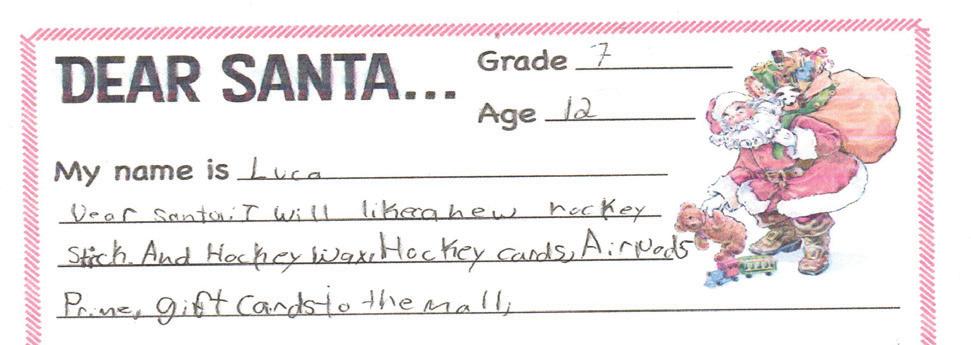 DEAR SANTA...
Grade 7
Age 12
My name is Luca
Dear santa: I will like a new hockey
Stick. And Hockey Wax, Hockey cards, Airpods
Prime, gift cards to the mall,